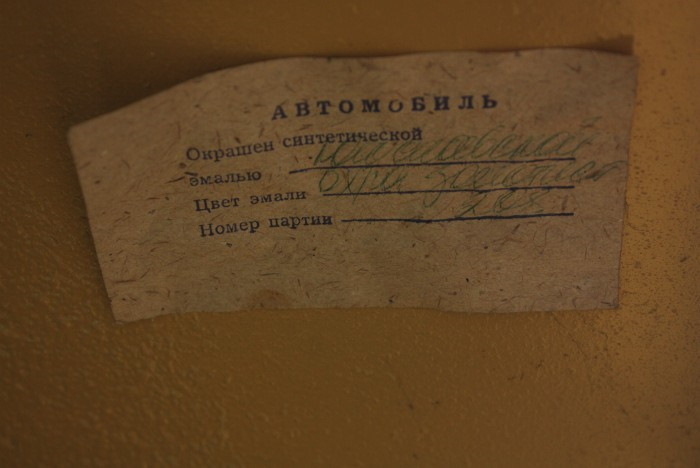 АВТОМОБИЛЬ
Окрашен синтетической
эмалью
Цвет эмали охра золотист
Номер партии